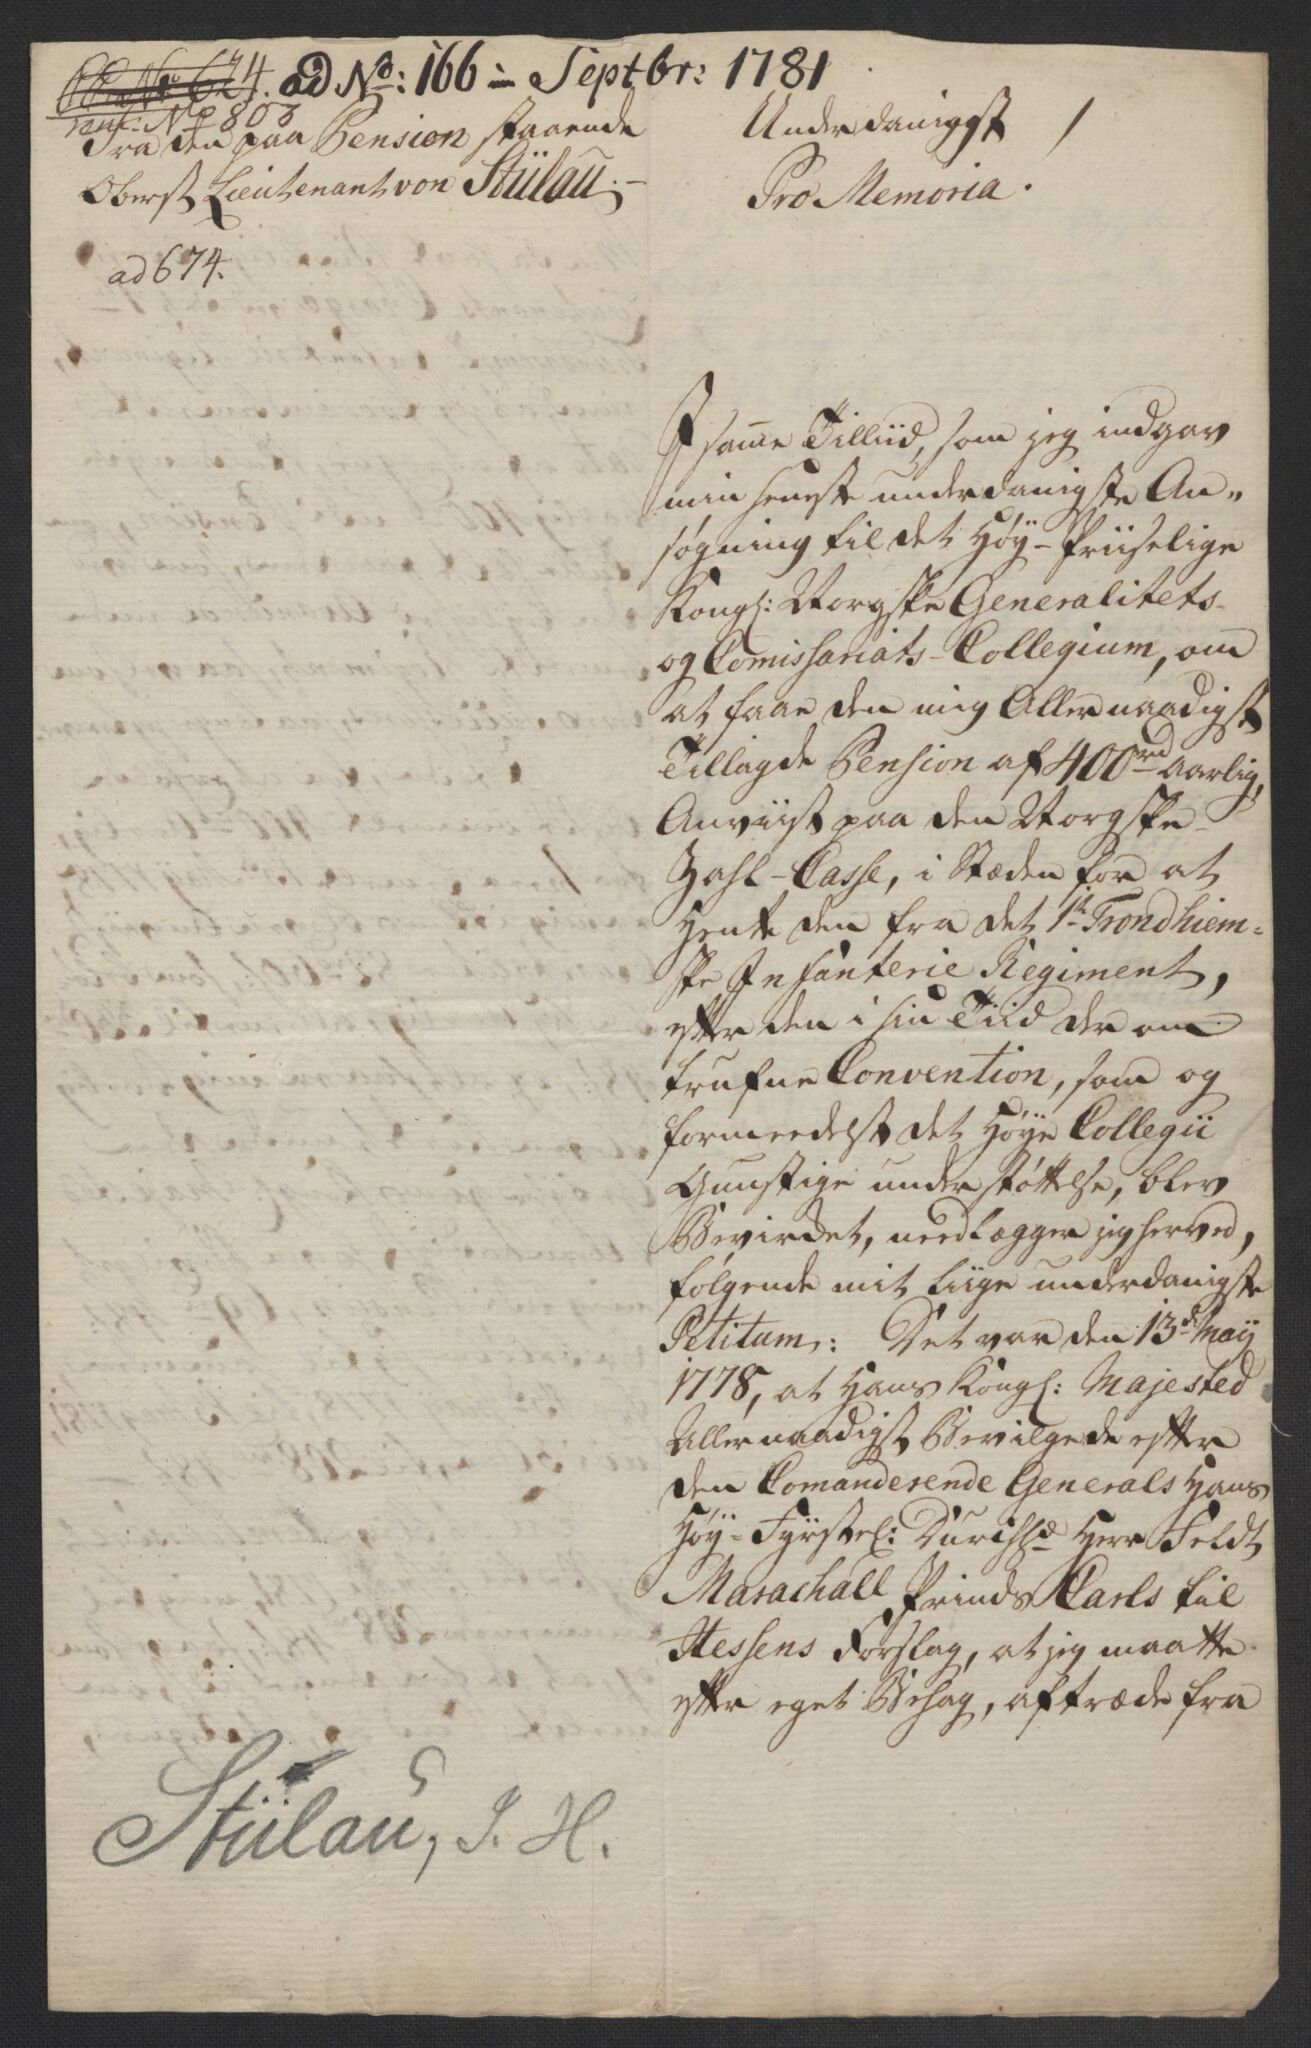 ad No: 166 in Septbr: 1781
conf: No 803
Fra den paa Pension staaende
Oberst Lieutenant von Stülau. –
ad 674.
Underdanigst
Pro Memoria.
1
I samme Tilliid, som jeg indgav
min seneste underdanigste An„
søgning til det Høy-Priiselige
Kongl: Norgske Generalitets-
og Comissariats-Collegium, om
at faae den mig Allernaadigst
Tillagde Pension af 400rd aarlig,
Anviist paa den Norgske
Zahl-Casse, i Stæden for at
Hente den fra det 1te Trondhiem=
ske Infanterie Regiment,
efter den i sin Tiid der om
trufne Convention, som og
formeedelst det Høye Collegii
Gunstige understøttelse, blev
Bevirdet, needlægger jeg herved,
følgende mit liige underdanigste
Petitum: Det var den 13de May
1778, at Hans Kongl: Majested
Allernaadigst Bevilgede efter
den Comanderende Generals Hans
Høy-Fyrstel: Durchld Herr Feldt
Marschall Prinds Carls til
Hessens Forslag, at jeg maatte
efter eget Behag, aftræde fra
Stülau, J. H.